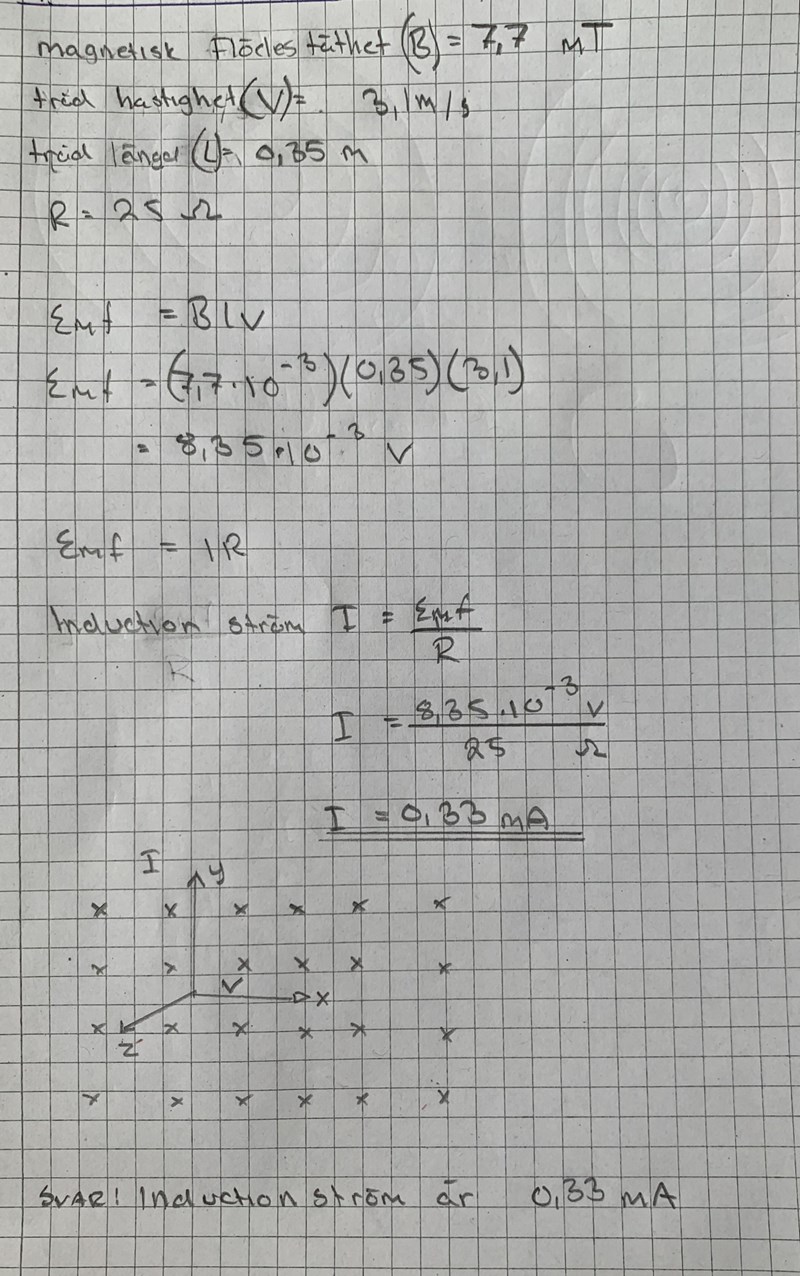 magnetisk Flödes täthet (B) = 7,7 mT
tråd hastighet (V) = 3,1 m/s
tråd längd (L) = 0,35 m
R = 25 Ω
Emf = BLV
Emf = (7,7·10⁻³)(0,35)(3,1)
= 8,35·10⁻³ V
Emf = IR
Induction ström I = Emf / R
R
I = 8,35·10⁻³ V / 25 Ω
I = 0,33 mA
I y
x x x x x x
x x x x x x
V x
x x x x x x
z
x x x x x x
SVAR! Induction ström är 0,33 mA